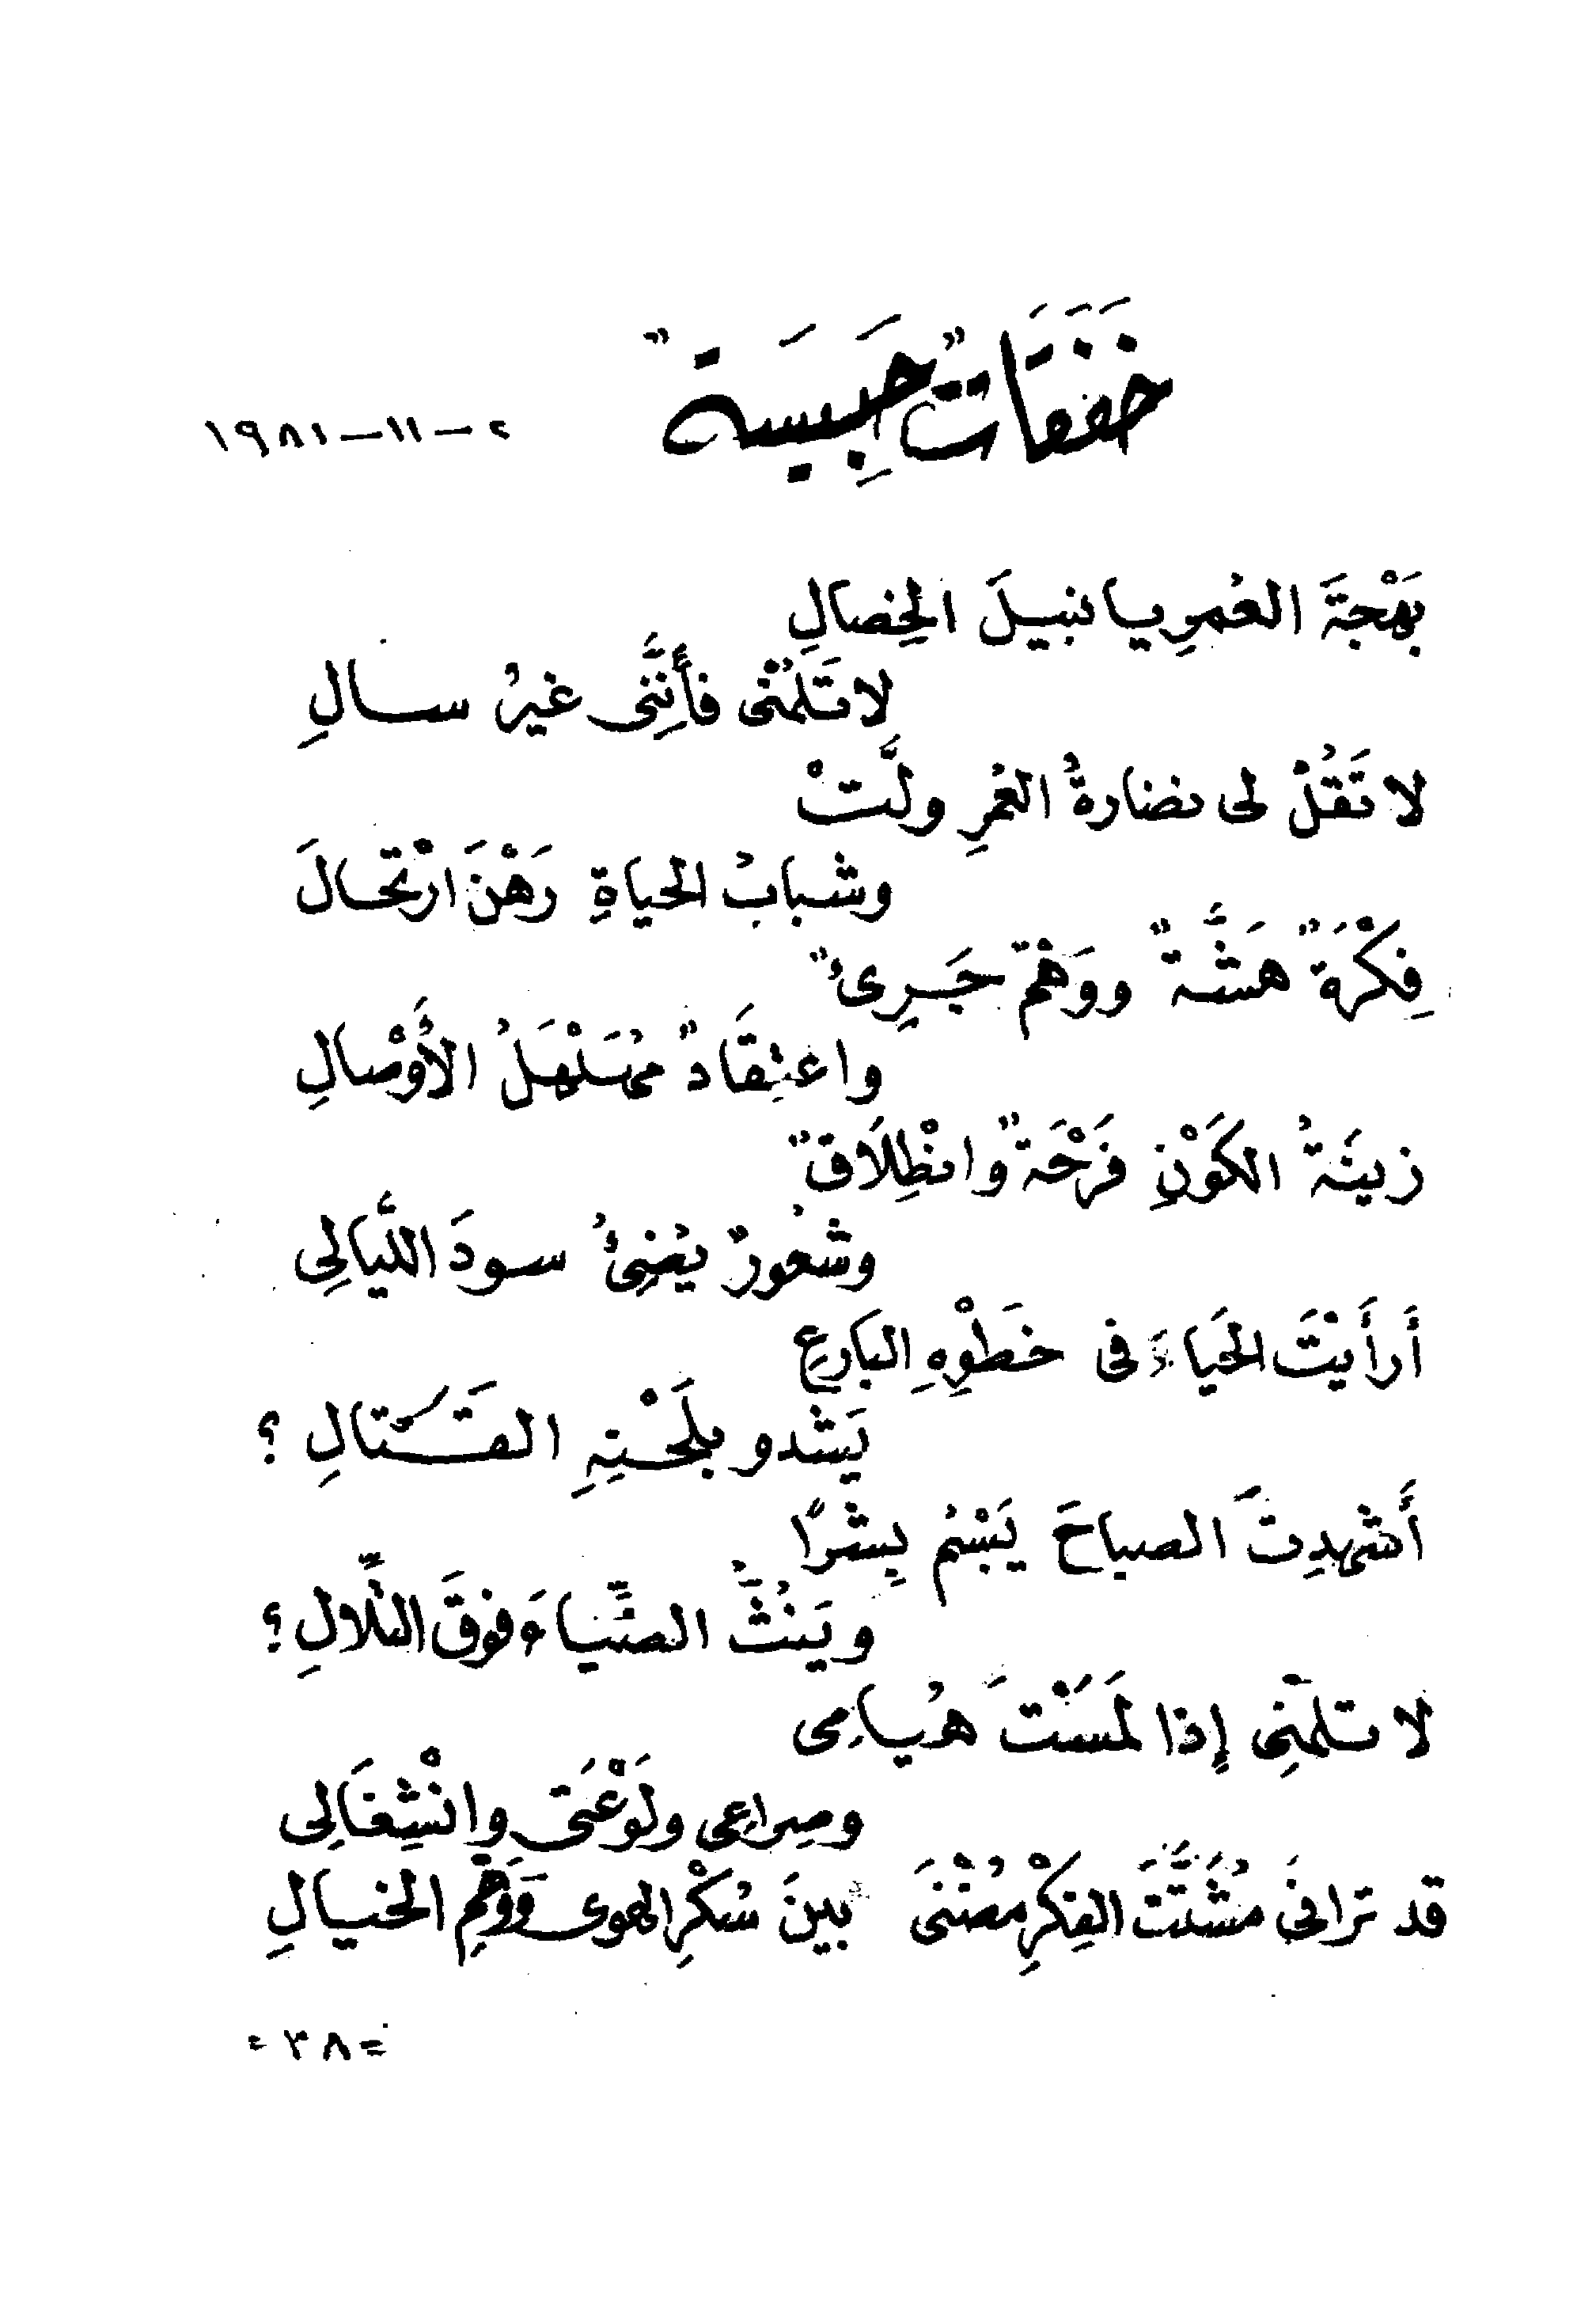 خَفَقَاتٌ حَبِيسَةٌ
٢-١١-١٩٨١
بَهْجَةَ العُمرِ يا نبيلَ الخِصالِ
لا تَلُمْنى فأَنِنَّى غيرُ سالِ
لا تَقُلْ لى نضارةُ العُمرِ ولَّتْ
وشبابُ الحياةِ رَهْنَ ارْتحالَ
فِكْرَةٌ هَشَّةٌ ووَهْمٌ جَرِىءٌ
واعتِقَادٌ مُهَلْهَلُ الأَوْصالِ
زينَةُ الكَوْنِ فَرْحَةٌ وانْطِلَاقٌ
وشُعُورٌ يُضىءُ سودَ اللَّيالِى
أَرأَيْتَ الحَياءَ فى خَطْوِهِ البارعِ
يَشْدو بلَحْنِهِ القَتَّالِ ؟
أَشَهِدتَ الصباحَ يَبْسُمُ بِشْرًا
ويَنُثُّ الضِّياءَ فوقَ التِّلالِ ؟
لا تلمْنِى إذا لَمَسْتَ هُيامِى
وصِراعِى ولَوْعَتِى وانْشِغَالِى
قد ترانىَ مُشَتَّتَ الفِكْرِ مُضْنَىً بينَ سُكْرِ الهوى وَوَهْمِ الخيالِ
= ٣٨ =